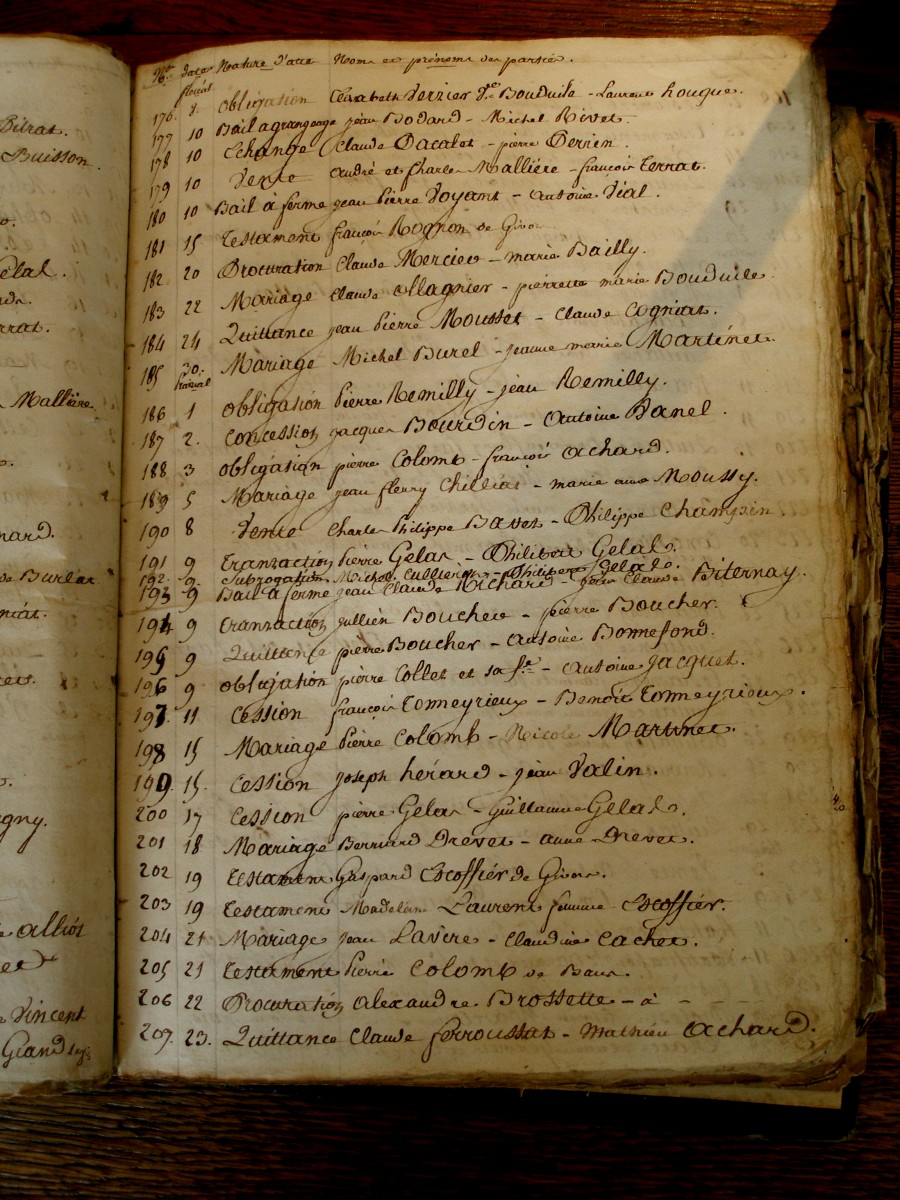 Pitrat.
Buisson
Gelal.
Mallière
de Burlat
agny.
alliot
Vincent
Giraud
Nos date Nature d'acte Noms et prénoms des parties.
floréal
176 9. obligation Elisabeth Verzier Vve Bouduile - Laurent Rouque.
177 10 Bail a grangeage jean Bodard - Michel Rivet.
178 10 Echange Claude Dacalet - pierre Perrien.
179 10 Vente andré et Charles Mallière - françois Terrat.
180 10 Bail à ferme jean Pierre Voyant - Antoine Vial.
181 15 Testament françois Rognon de Givors
182 20 Procuration Claude Mercier - marie Bailly.
183 22 Mariage Claude ollagnier - pierrette marie Bouduile
184 24 Quittance jean Pierre Mousset - Claude Cogniat.
185 30. Mariage Michel Burel - jeanne marie Martinet.
prairial
186 1 obligation Pierre Remilly - jean Remilly.
187 2. Concession jacques Bourdin - Antoine Danel.
188 3 obligation pierre Colomb - françois achard.
189 5 Mariage jean fleury Chilliat - marie anne Moussy.
190 8 Vente Charles Philippe Bavet - Philippe Champin
191 9 tranzaction Pierre Gelas - Philibert Gelas.
192. 9. Subrogation Michel Cullierat - Philibert Gelas.
193 9 Bail à ferme jean Claude Richard - jean Claude Biternay.
194 9 tranzaction jullien Boucher - pierre Boucher.
195 9 Quittance pierre Boucher - Antoine Bonnefond.
196 9 obligation pierre Collet et sa fe - antoine jacquet.
197. 11 Cession françois Tomeyrieux - Benoit Tomeyrieux.
198 15 Mariage Pierre Colomb - Nicole Martinet.
199. 15. Cession joseph hérard - jean Valin.
200 17 Cession pierre Gelas - Guillaume Gelas.
201 18 Mariage Bernard Drevet - anne Drevet.
202 19 testament Gaspard Escoffier de Givors.
203 19 testament Madelaine Laurent femme Escoffier.
204 21 Mariage jean Lavere - Claudine Cachet.
205 21 testament Pierre Colomb de Bans.
206 22 Procuration alexandre Brossette - à - - -
207. 23. Quittance Claude ferroussat - Mathieu achard.